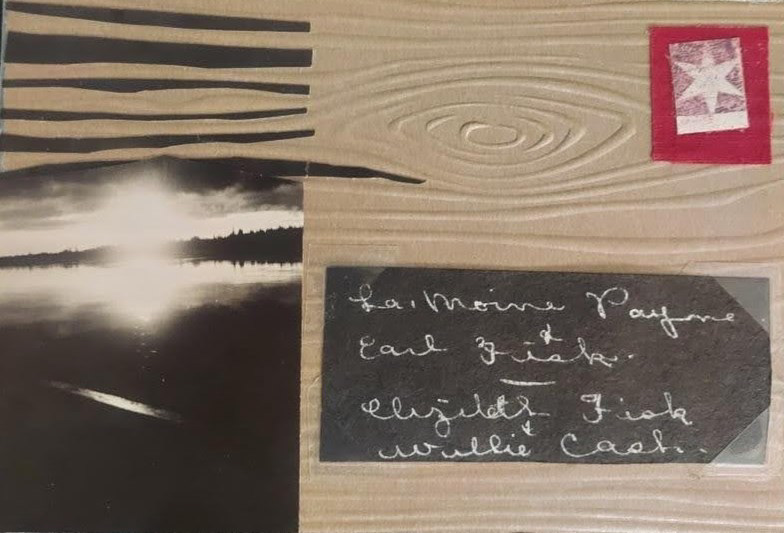 La. Moine Payne
&
Earl Fisk.
Fisk
&
Willie Cash..